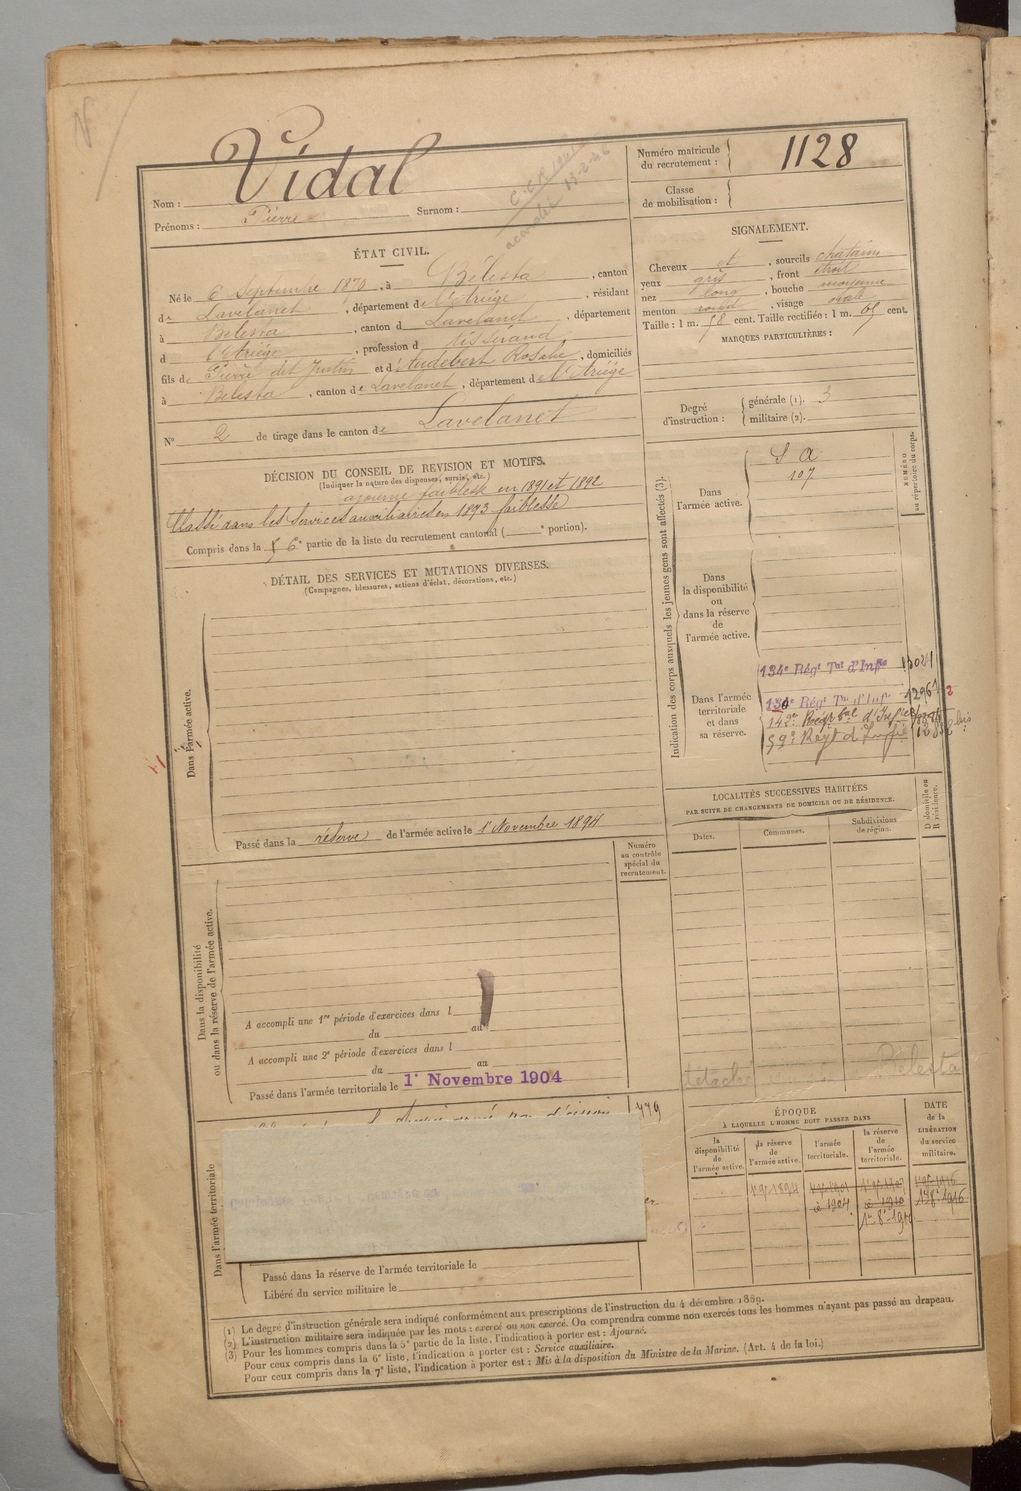 Vidal
Nom :
Prénoms : Pierre Surnom :
Numéro matricule du recrutement : 1128
Classe de mobilisation :
ÉTAT CIVIL.
Né le 6 Septembre 1870, à Bélesta, canton
de Lavelanet, département de l'Ariège, résidant
à Bélesta, canton d Lavelanet, département
d l'Ariège, profession d tisserand
fils de Pierre dit Justin et d'Audebert Rosalie, domiciliés
à Bélesta, canton de Lavelanet, département de l'Ariège
N° 2 de tirage dans le canton de Lavelanet
SIGNALEMENT.
Cheveux et, sourcils chatains
yeux gris, front étroit
nez long, bouche moyenne
menton rond, visage ovale
Taille : 1 m. 58 cent. Taille rectifiée : 1 m. 05 cent.
MARQUES PARTICULIÈRES :
Degré d'instruction : générale (1). 3
militaire (2).
DÉCISION DU CONSEIL DE REVISION ET MOTIFS.
(Indiquer la nature des dispenses, sursis, etc.)
ajourné faiblesse en 1891 et 1892
Classé dans les Services auxiliaires en 1893 faiblesse
Compris dans la 6e partie de la liste du recrutement cantonal ( e portion).
DÉTAIL DES SERVICES ET MUTATIONS DIVERSES.
(Campagnes, blessures, actions d'éclat, décorations, etc.)
Dans l'armée active.
Passé dans la réserve de l'armée active le 1r Novembre 1894
Indication des corps auxquels les jeunes gens sont affectés (3).
NUMÉRO au répertoire du corps.
Dans l'armée active.
S A
107
Dans la disponibilité ou dans la réserve de l'armée active.
Dans l'armée territoriale et dans sa réserve.
134e Régt Tal d'Infie
130e Régt Tal d'Inf
142e Régt tal d'Infie
59e Régt d'Infie
LOCALITÉS SUCCESSIVES HABITÉES
PAR SUITE DE CHANGEMENTS DE DOMICILE OU DE RÉSIDENCE.
Dates. Communes. Subdivisions de région. D domicile ou R résidence.
Bélesta
Numéro au contrôle spécial du recrutement.
Dans la disponibilité ou dans la réserve de l'armée active.
A accompli une 1re période d'exercices dans l
du au
A accompli une 2e période d'exercices dans l
du au
Passé dans l'armée territoriale le 1r Novembre 1904
779
Dans l'armée territoriale
Passé dans la réserve de l'armée territoriale le
Libéré du service militaire le
ÉPOQUE
À LAQUELLE L'HOMME DOIT PASSER DANS
la disponibilité de l'armée active.
la réserve de l'armée active.
l'armée territoriale.
la réserve de l'armée territoriale.
DATE de la LIBÉRATION du service militaire.
(1) Le degré d'instruction générale sera indiqué conformément aux prescriptions de l'instruction du 4 décembre 1889.
(2) L'instruction militaire sera indiquée par les mots : exercé ou non exercé. On comprendra comme non exercés tous les hommes n'ayant pas passé au drapeau.
(3) Pour les hommes compris dans la 5e partie de la liste, l'indication à porter est : Ajourné.
Pour ceux compris dans la 6e liste, l'indication à porter est : Service auxiliaire.
Pour ceux compris dans la 7e liste, l'indication à porter est : Mis à la disposition du Ministre de la Marine. (Art. 4 de la loi.)